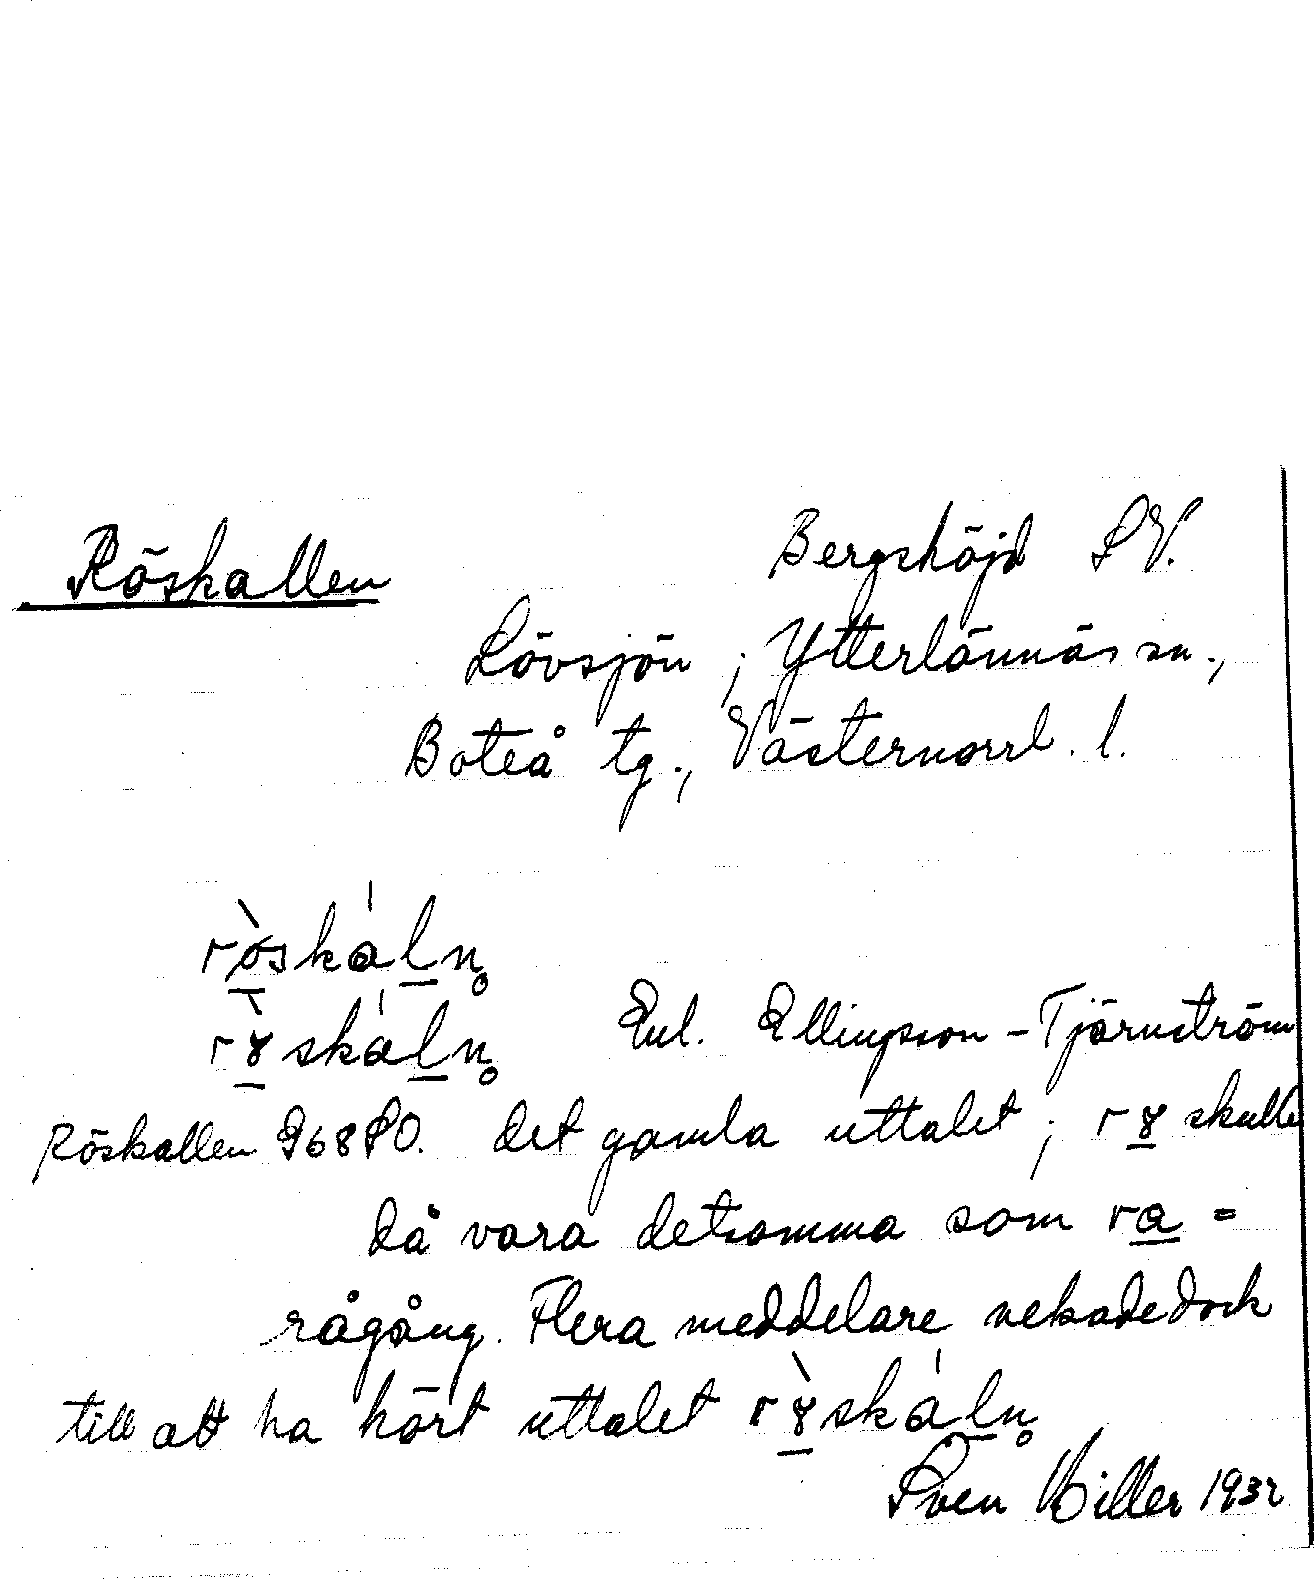 Röskallen
Bergshöjd SV.
Lövsjön; Ytterlännäs sn.,
Boteå tg., Västernorrl. l.
rö̀skáln̥
rɤ̀skáln̥ Enl. Ellingsson-Tjärnström
Röskallen 968 SO. det gamla uttalet; rɤ skulle
då vara detsamma som ra =
rågång. Flera meddelare nekade dock
till att ha hört uttalet rɤ̀skáln̥
Sven Hiller 1932